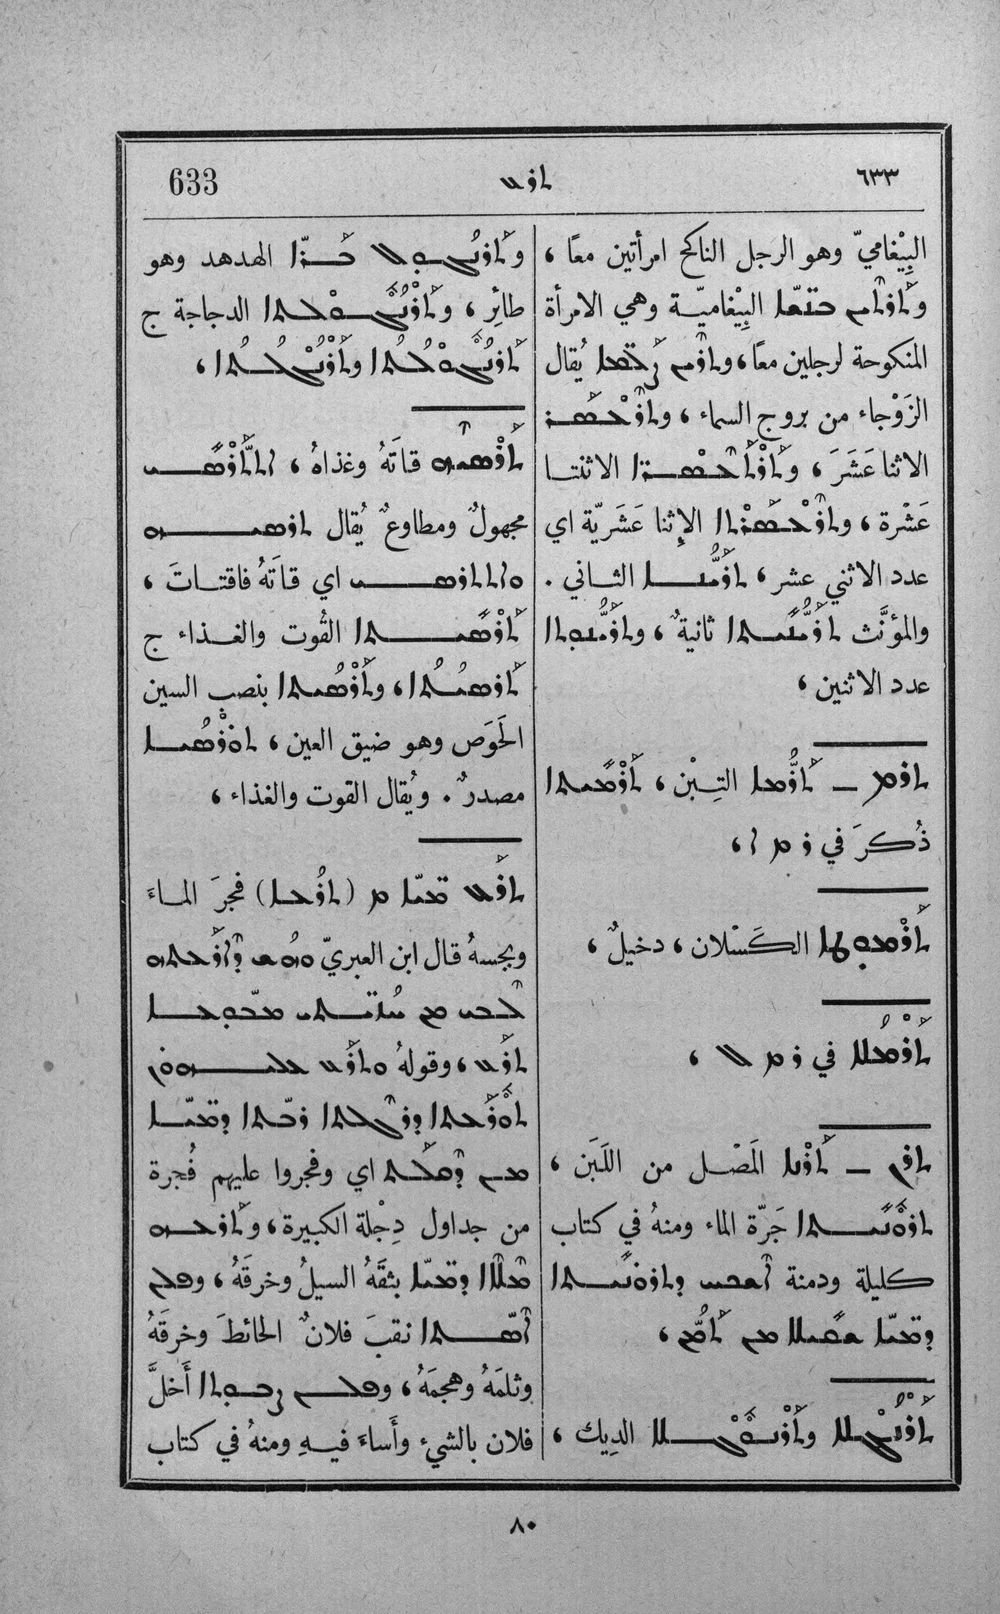 ٦٣٣ ܬܪܥ 633
البِيْغاميّ وهو الرجل الناكح امرأتين معًا ،
البِيْغاميّـة وهي الامرأة
المنكوحة لرجلين معًا ، وܬܪܝܢ ܨܠܡ̈ܐ يُقال
الزَوْجاء من بروج السماء ، وܬܪܥܣܪ
الاثنا عَشَرَ ، وܬܪܬܥܣܪ̈ܐ الاثنتـا
عَشْرة ، وܬܪܥܣܪܬܐ الإِثنا عَشَريّة اي
عدد الاثني عشر ، ܬܪܝܢܐ الثـاني .
والمؤنَّث ܬܪܝܢܝܬܐ ثانيةٌ ، وܬܪܝܢܘܬܐ
عدد الاثنين ،
ܬܪܡ ـ ܬܪܡܐ التِـبْن ، ܬܪܡܝܬܐ
ذُكرَ في ܪ ܡ ܐ ،
ܬܪܡܘܛܐ الكَسْلان ، دخيلٌ ،
ܬܪܡܠܐ في ܪ ܡ ܠ ،
ܬܪܢ ـ ܬܪܢܐ المَصْـل من اللَبَن ،
ܬܪܘܢܝܬܐ جَرّة الماء ومنهُ في كتاب
كليلة ودمنة ܐܡܣܝ ܕܬܪܘܢܝܬܐ
ܕܡܝ̈ܐ ܣܡܝܠܐ ܡܢ ܬܡܢ ،
ܬܪܢܓܠܐ وܬܪܢܘܓܠܐ الدِيك ،
وܬܪܢܓܘܠ ܒܪܐ الهدهد وهو
طائِر ، وܬܪܢܓܘܠܬܐ الدجاجة ج
ܬܪܢܓܘܠܝܬܐ وܬܪܢܓܠܬܐ ،
ܬܪܣܝܗ قاتَهُ وغذاهُ ، ܐܬܬܪܣܝ
مجهولٌ ومطاوعٌ يُقال ܬܪܣܝܗ
ܘܐܬܬܪܣܝ اي قاتَهُ فاقتـاتَ ،
ܬܪܣܝܬܐ القُوت والغـذاء ج
ܬܪܣܝܬܐ ، وܬܪܣܝܬܐ بنصبِ السين
الحَوَص وهو ضيق العين ، ܬܘܪܣܝܐ
مصدرٌ . ويُقال القوت والغذاء ،
ܬܪܥ ܡܝ̈ܐ ܡ (ܬܪܥܐ) فجرَ المـاءَ
وبجسهُ قال ابن العبريّ
ܬܪܥ ، وقولهُ ܘܬܪܥ ܥܠܝܗܘܢ
ܬܘܪܥܬܐ ܪܒܬܐ ܕܡܝ̈ܐ
ܡܢ ܕܩܠܬ اي وفجروا عليهم فُجرة
من جداول دِجْلة الكبيرة ، وܬܪܥܗ
ܕܡܝ̈ܐ بثقَهُ السيلُ وخرقَهُ ، وܦܠܢ
ܐܣܬܐ نقبَ فلانٌ الحائطَ وخرقَهُ
وثلمَهُ وهجمَهُ ، وܦܠܢ ܨܒܘܬܐ أَخلَّ
فلان بالشيء وأَساءَ فيـهِ ومنهُ في كتاب
٨٠